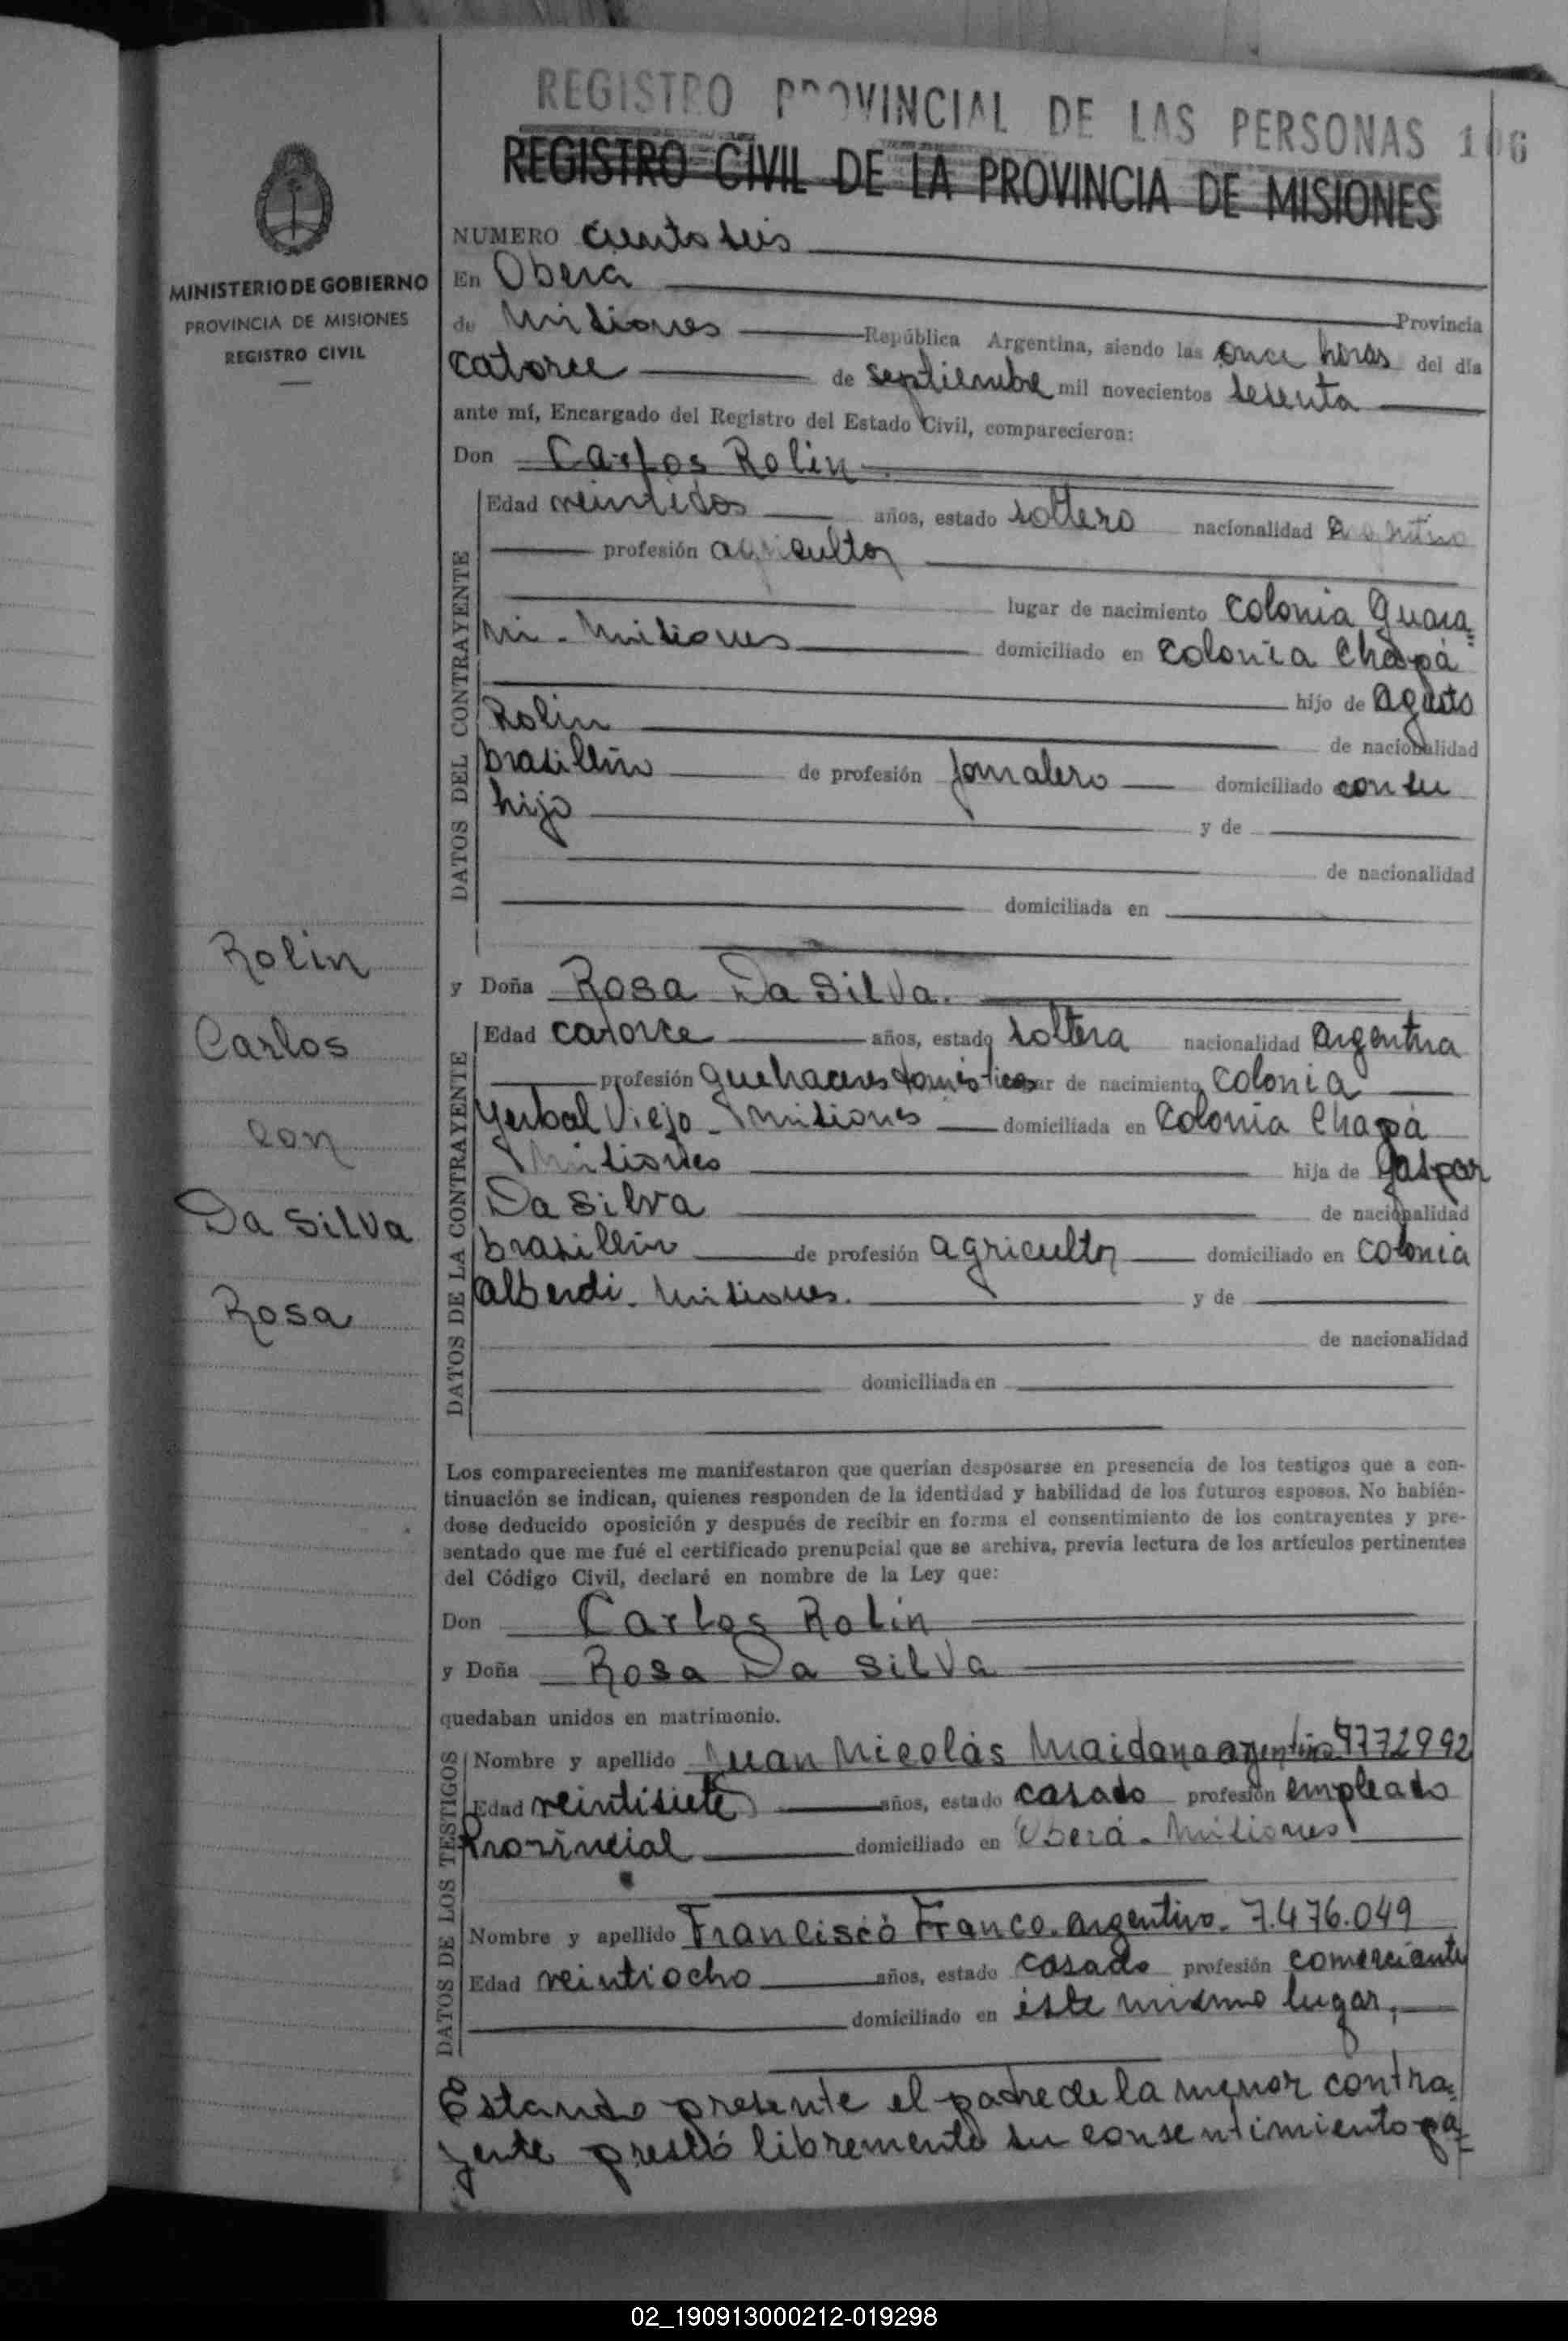 REGISTRO PROVINCIAL DE LAS PERSONAS 106
REGISTRO CIVIL DE LA PROVINCIA DE MISIONES
MINISTERIO DE GOBIERNO
PROVINCIA DE MISIONES
REGISTRO CIVIL
NUMERO ciento seis
En Oberá
Provincia
de Misiones República Argentina, siendo las once horas del día
catorce de septiembre mil novecientos sesenta
ante mí, Encargado del Registro del Estado Civil, comparecieron:
Don Carlos Rolin
DATOS DEL CONTRAYENTE
Edad veintidos años, estado soltero nacionalidad argentino
profesión agricultor
lugar de nacimiento Colonia Guara=
ni - Misiones domiciliado en Colonia Chapá
hijo de Agusto
Rolin
de nacionalidad
brasilleño de profesión jornalero domiciliado con su
hijo y de
de nacionalidad
domiciliada en
y Doña Rosa Da Silva.
DATOS DE LA CONTRAYENTE
Edad catorce años, estado soltera nacionalidad argentina
profesión quehaceres domésticos lugar de nacimiento Colonia
Yerbal Viejo - Misiones domiciliada en Colonia Chapá
Misiones hija de Gaspar
Da Silva
de nacionalidad
brasilleño de profesión agricultor domiciliado en colonia
Alberdi. Misiones. y de
de nacionalidad
domiciliada en
Rolin
Carlos
con
Da Silva
Rosa
Los comparecientes me manifestaron que querían desposarse en presencia de los testigos que a con-
tinuación se indican, quienes responden de la identidad y habilidad de los futuros esposos. No habién-
dose deducido oposición y después de recibir en forma el consentimiento de los contrayentes y pre-
sentado que me fué el certificado prenupcial que se archiva, previa lectura de los artículos pertinentes
del Código Civil, declaré en nombre de la Ley que:
Don Carlos Rolin
y Doña Rosa Da Silva
quedaban unidos en matrimonio.
DATOS DE LOS TESTIGOS
Nombre y apellido Juan Nicolás Maidana argentino 4772992
Edad veintisiete años, estado casado profesión empleado
Provincial domiciliado en Oberá - Misiones
Nombre y apellido Francisco Franco. argentino - 7.476.049
Edad veintiocho años, estado casado profesión comerciante
domiciliado en éste mismo lugar.
Estando presente el padre de la menor contra=
yente prestó libremente su consentimiento pa=
02_190913000212-019298